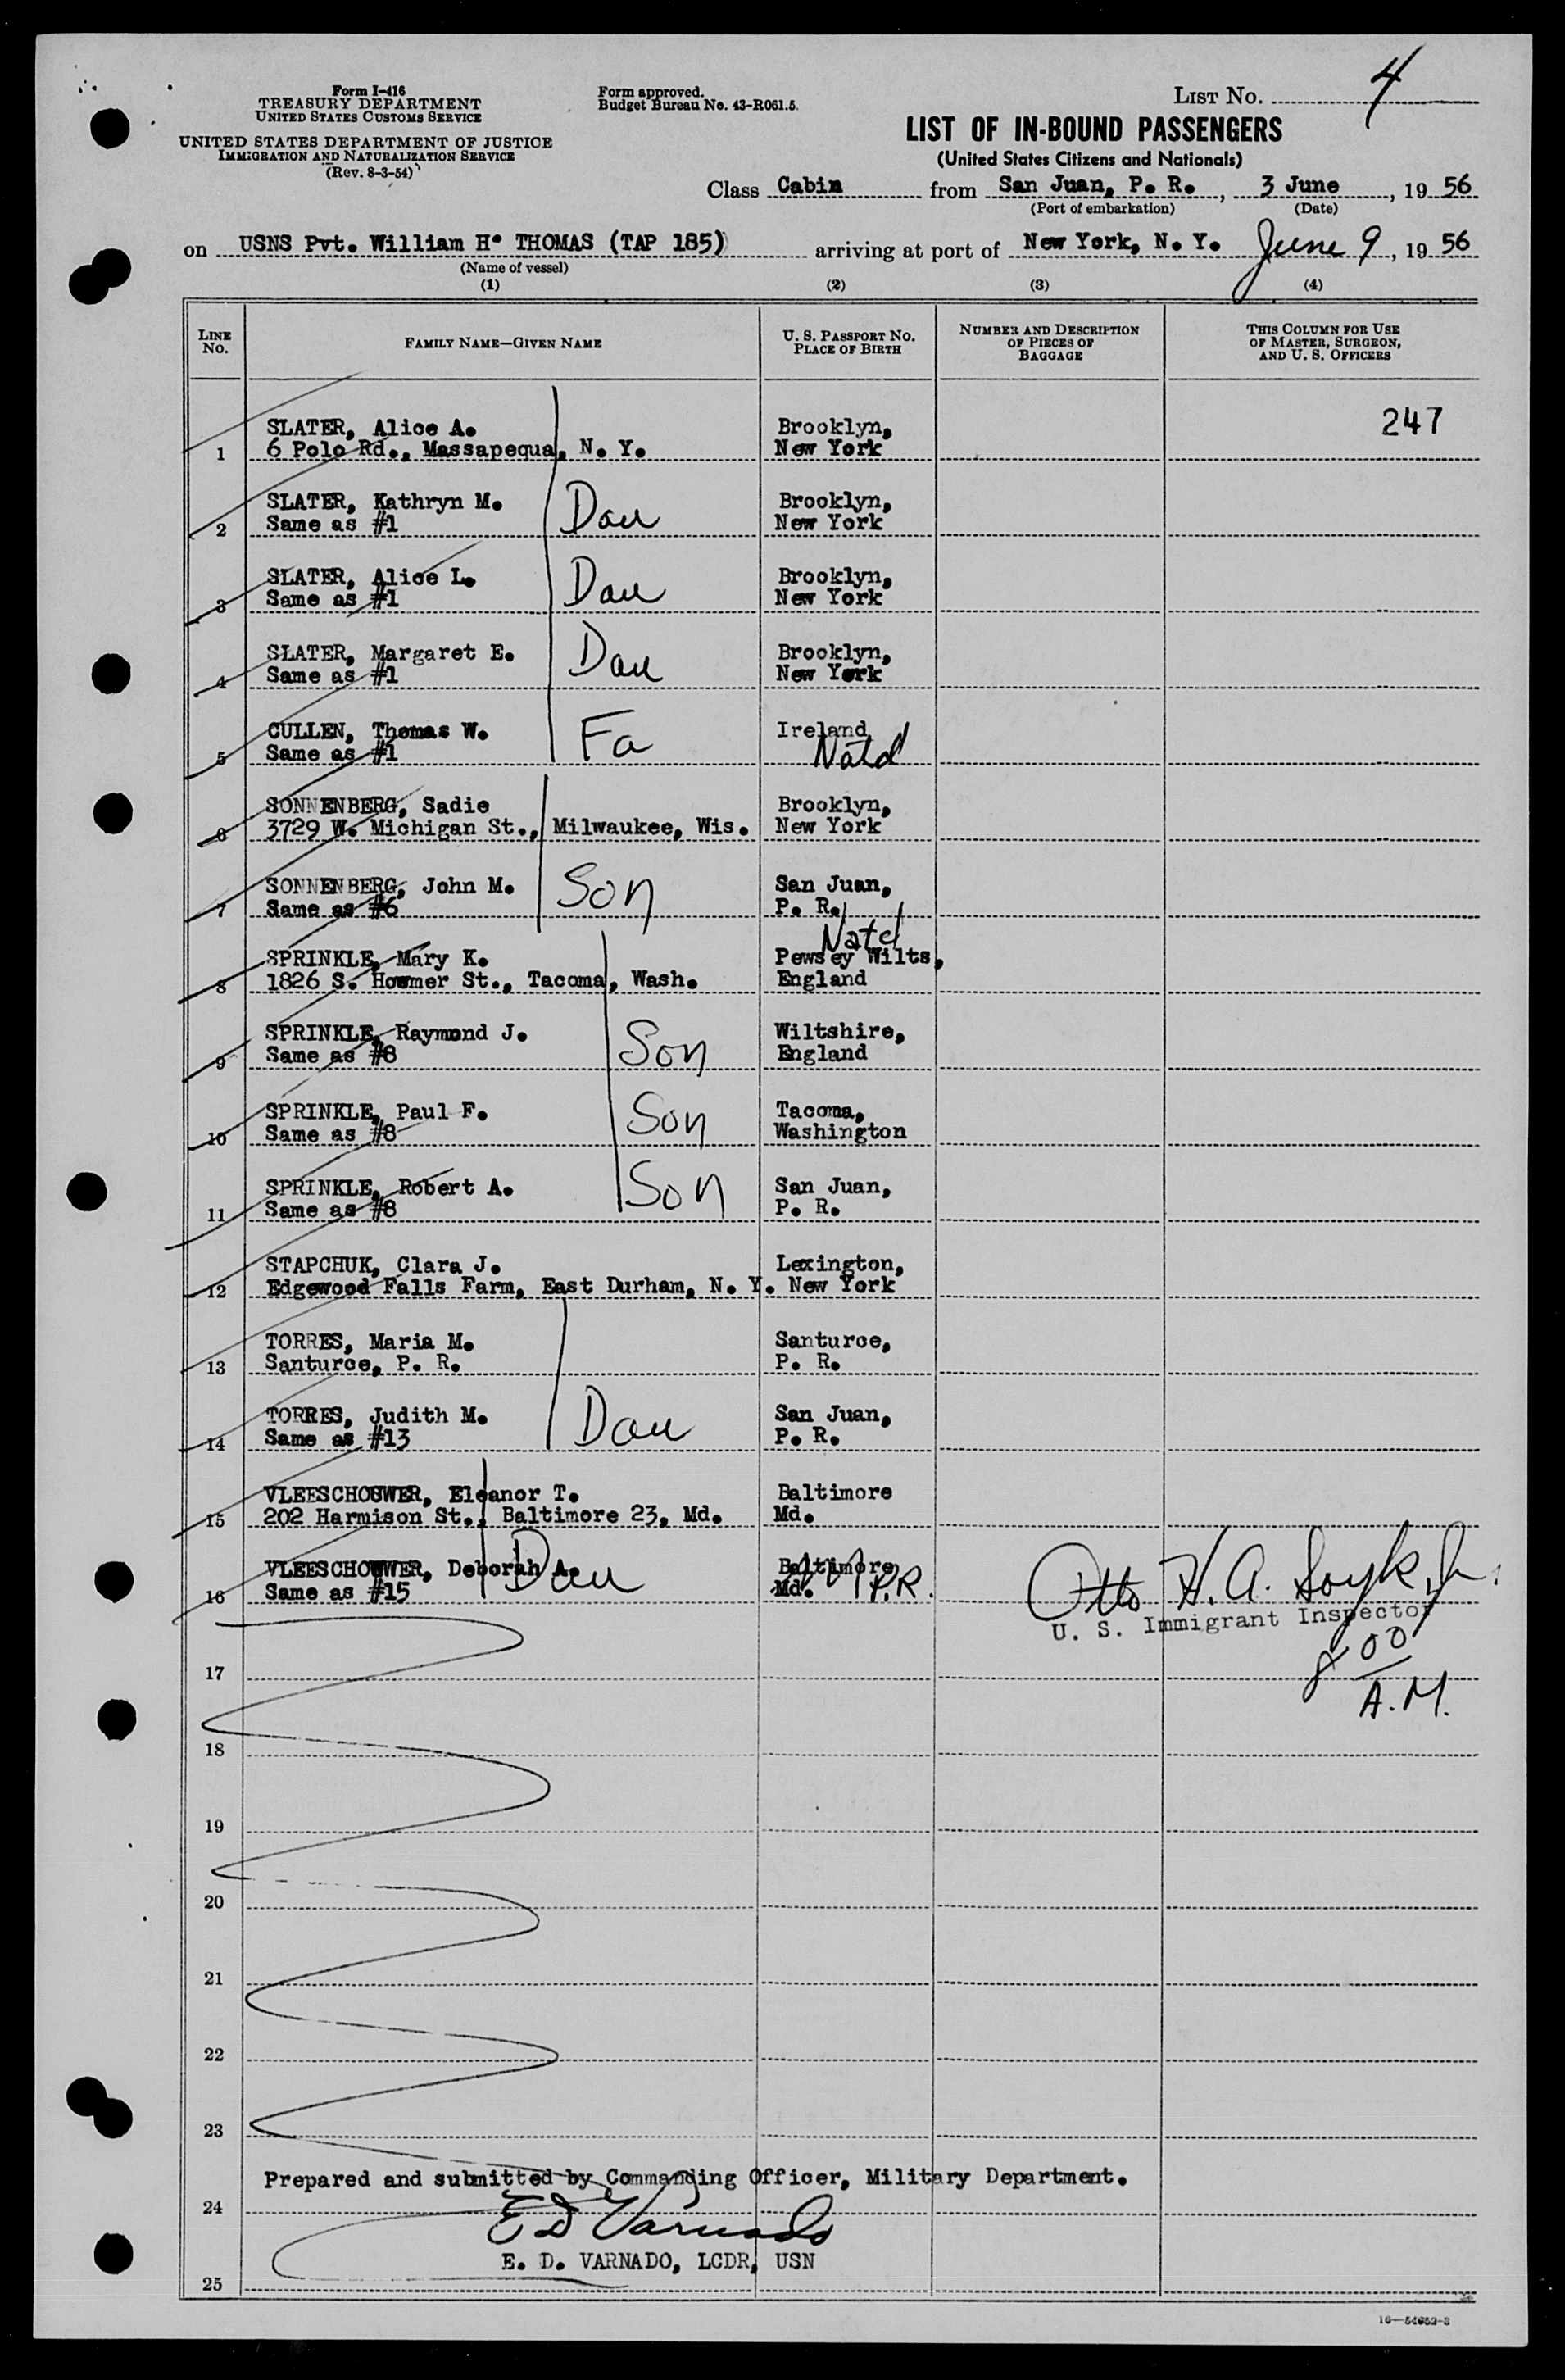 Form I-416
TREASURY DEPARTMENT
UNITED STATES CUSTOMS SERVICE
UNITED STATES DEPARTMENT OF JUSTICE
IMMIGRATION AND NATURALIZATION SERVICE
(Rev. 8-3-54)
Form approved.
Budget Bureau No. 43-R061.5.
LIST NO. 4
LIST OF IN-BOUND PASSENGERS
(United States Citizens and Nationals)
Class Cabin from San Juan, P. R., 3 June, 19 56
(Port of embarkation) (Date)
on USNS Pvt. William H. THOMAS (TAP 185) arriving at port of New York, N. Y. June 9, 19 56
(Name of vessel)
(1) (2) (3) (4)
LINE NO.
FAMILY NAME—GIVEN NAME
U. S. PASSPORT NO.
PLACE OF BIRTH
NUMBER AND DESCRIPTION
OF PIECES OF
BAGGAGE
THIS COLUMN FOR USE
OF MASTER, SURGEON,
AND U. S. OFFICERS
SLATER, Alice A. Brooklyn, 247
1 6 Polo Rd., Massapequa, N. Y. New York
SLATER, Kathryn M. Dau Brooklyn,
2 Same as #1 New York
SLATER, Alice L. Dau Brooklyn,
3 Same as #1 New York
SLATER, Margaret E. Dau Brooklyn,
4 Same as #1 New York
CULLEN, Thomas W. Fa Ireland
5 Same as #1 Natd
SONNENBERG, Sadie Brooklyn,
6 3729 W. Michigan St., Milwaukee, Wis. New York
SONNENBERG, John M. Son San Juan,
7 Same as #6 P. R.
Natd
SPRINKLE, Mary K. Pewsey Wilts,
8 1826 S. Howmer St., Tacoma, Wash. England
SPRINKLE, Raymond J. Son Wiltshire,
9 Same as #8 England
SPRINKLE, Paul F. Son Tacoma,
10 Same as #8 Washington
SPRINKLE, Robert A. Son San Juan,
11 Same as #8 P. R.
STAPCHUK, Clara J. Lexington,
12 Edgewood Falls Farm, East Durham, N. Y. New York
TORRES, Maria M. Santurce,
13 Santurce, P. R. P. R.
TORRES, Judith M. Dau San Juan,
14 Same as #13 P. R.
VLEESCHOUWER, Eleanor T. Baltimore
15 202 Harmison St., Baltimore 23, Md. Md.
VLEESCHOUWER, Deborah A. Dau Baltimore
16 Same as #15 Md. P.R.
Otto H. A. Soyk, Jr.
U. S. Immigrant Inspector
17
800
A.M.
18
19
20
21
22
23
Prepared and submitted by Commanding Officer, Military Department.
24
E D Varnado
E. D. VARNADO, LCDR, USN
25
16—54052-3